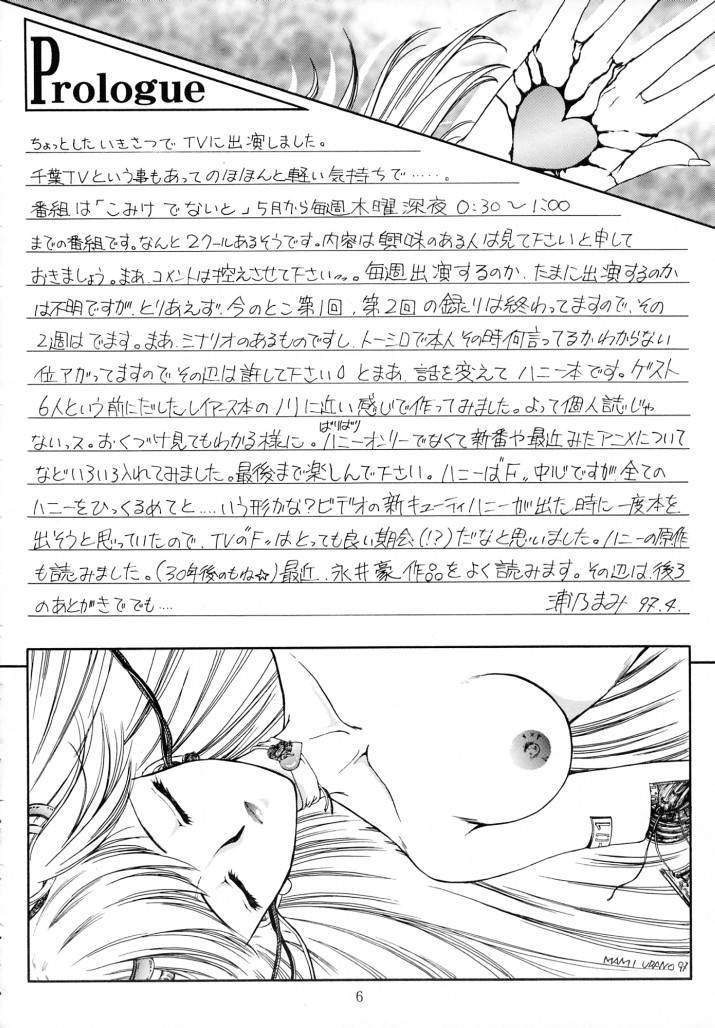 Prologue
ちょっとした いきさつで TVに出演しました。
千葉TVという事もあってのほほんと軽い気持ちで・・・・・。
番組は「こみけ でないと」5月から毎週木曜深夜 0:30〜1:00
までの番組です。なんと2クールあるそうです。内容は興味のある人は見て下さいと申して
おきましょう。まあ、コメントは控えさせて下さい。毎週出演するのか、たまに出演するのか
は不明ですが、とりあえず、今のとこ第1回、第2回の録りは終わってますので、その
2週はでます。まあ、ミナリオのあるものですし、トーシロで本人その時何言ってるかわからない
位アガってますのでその辺は許して下さい とまあ、話を変えて ハニー本です。ゲスト
6人という前にだしたレイアース本のノリに近い感じで作ってみました。よって個人誌じゃ
ないっス。おくづけ見てもわかる様に。ばりばりハニーオンリーでなくて新番や最近みたアニメについて
などいろいろ入れてみました。最後まで楽しんで下さい。ハニーは"F"中心ですが全ての
ハニーをひっくるめてと・・・・いう形かな?ビデオの新キューティハニーが出た時に一度本を
出そうと思っていたので、TVの"F"はとっても良い期会(!?)だなと思いました。ハニーの原作
も読みました。(30年後のもね☆)最近、永井豪作品をよく読みます。その辺は、後ろ
のあとがきででも・・・・
浦乃まみ 97.4.
MAMI URANO 97
6